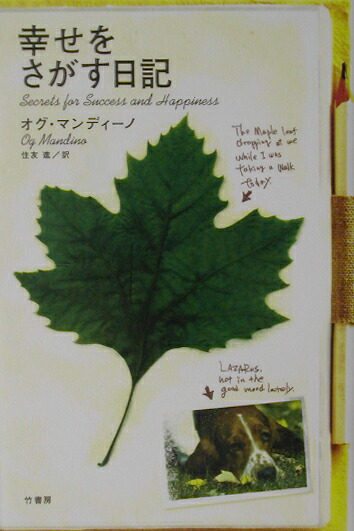 幸せを
さがす日記
Secrets for Success and Happiness
オグ・マンディーノ
Og Mandino
住友 進／訳
The Maple leaf
dropping at me
while I was
taking a walk
today.
LAZARUS,
not in the
good mood lately.
竹書房